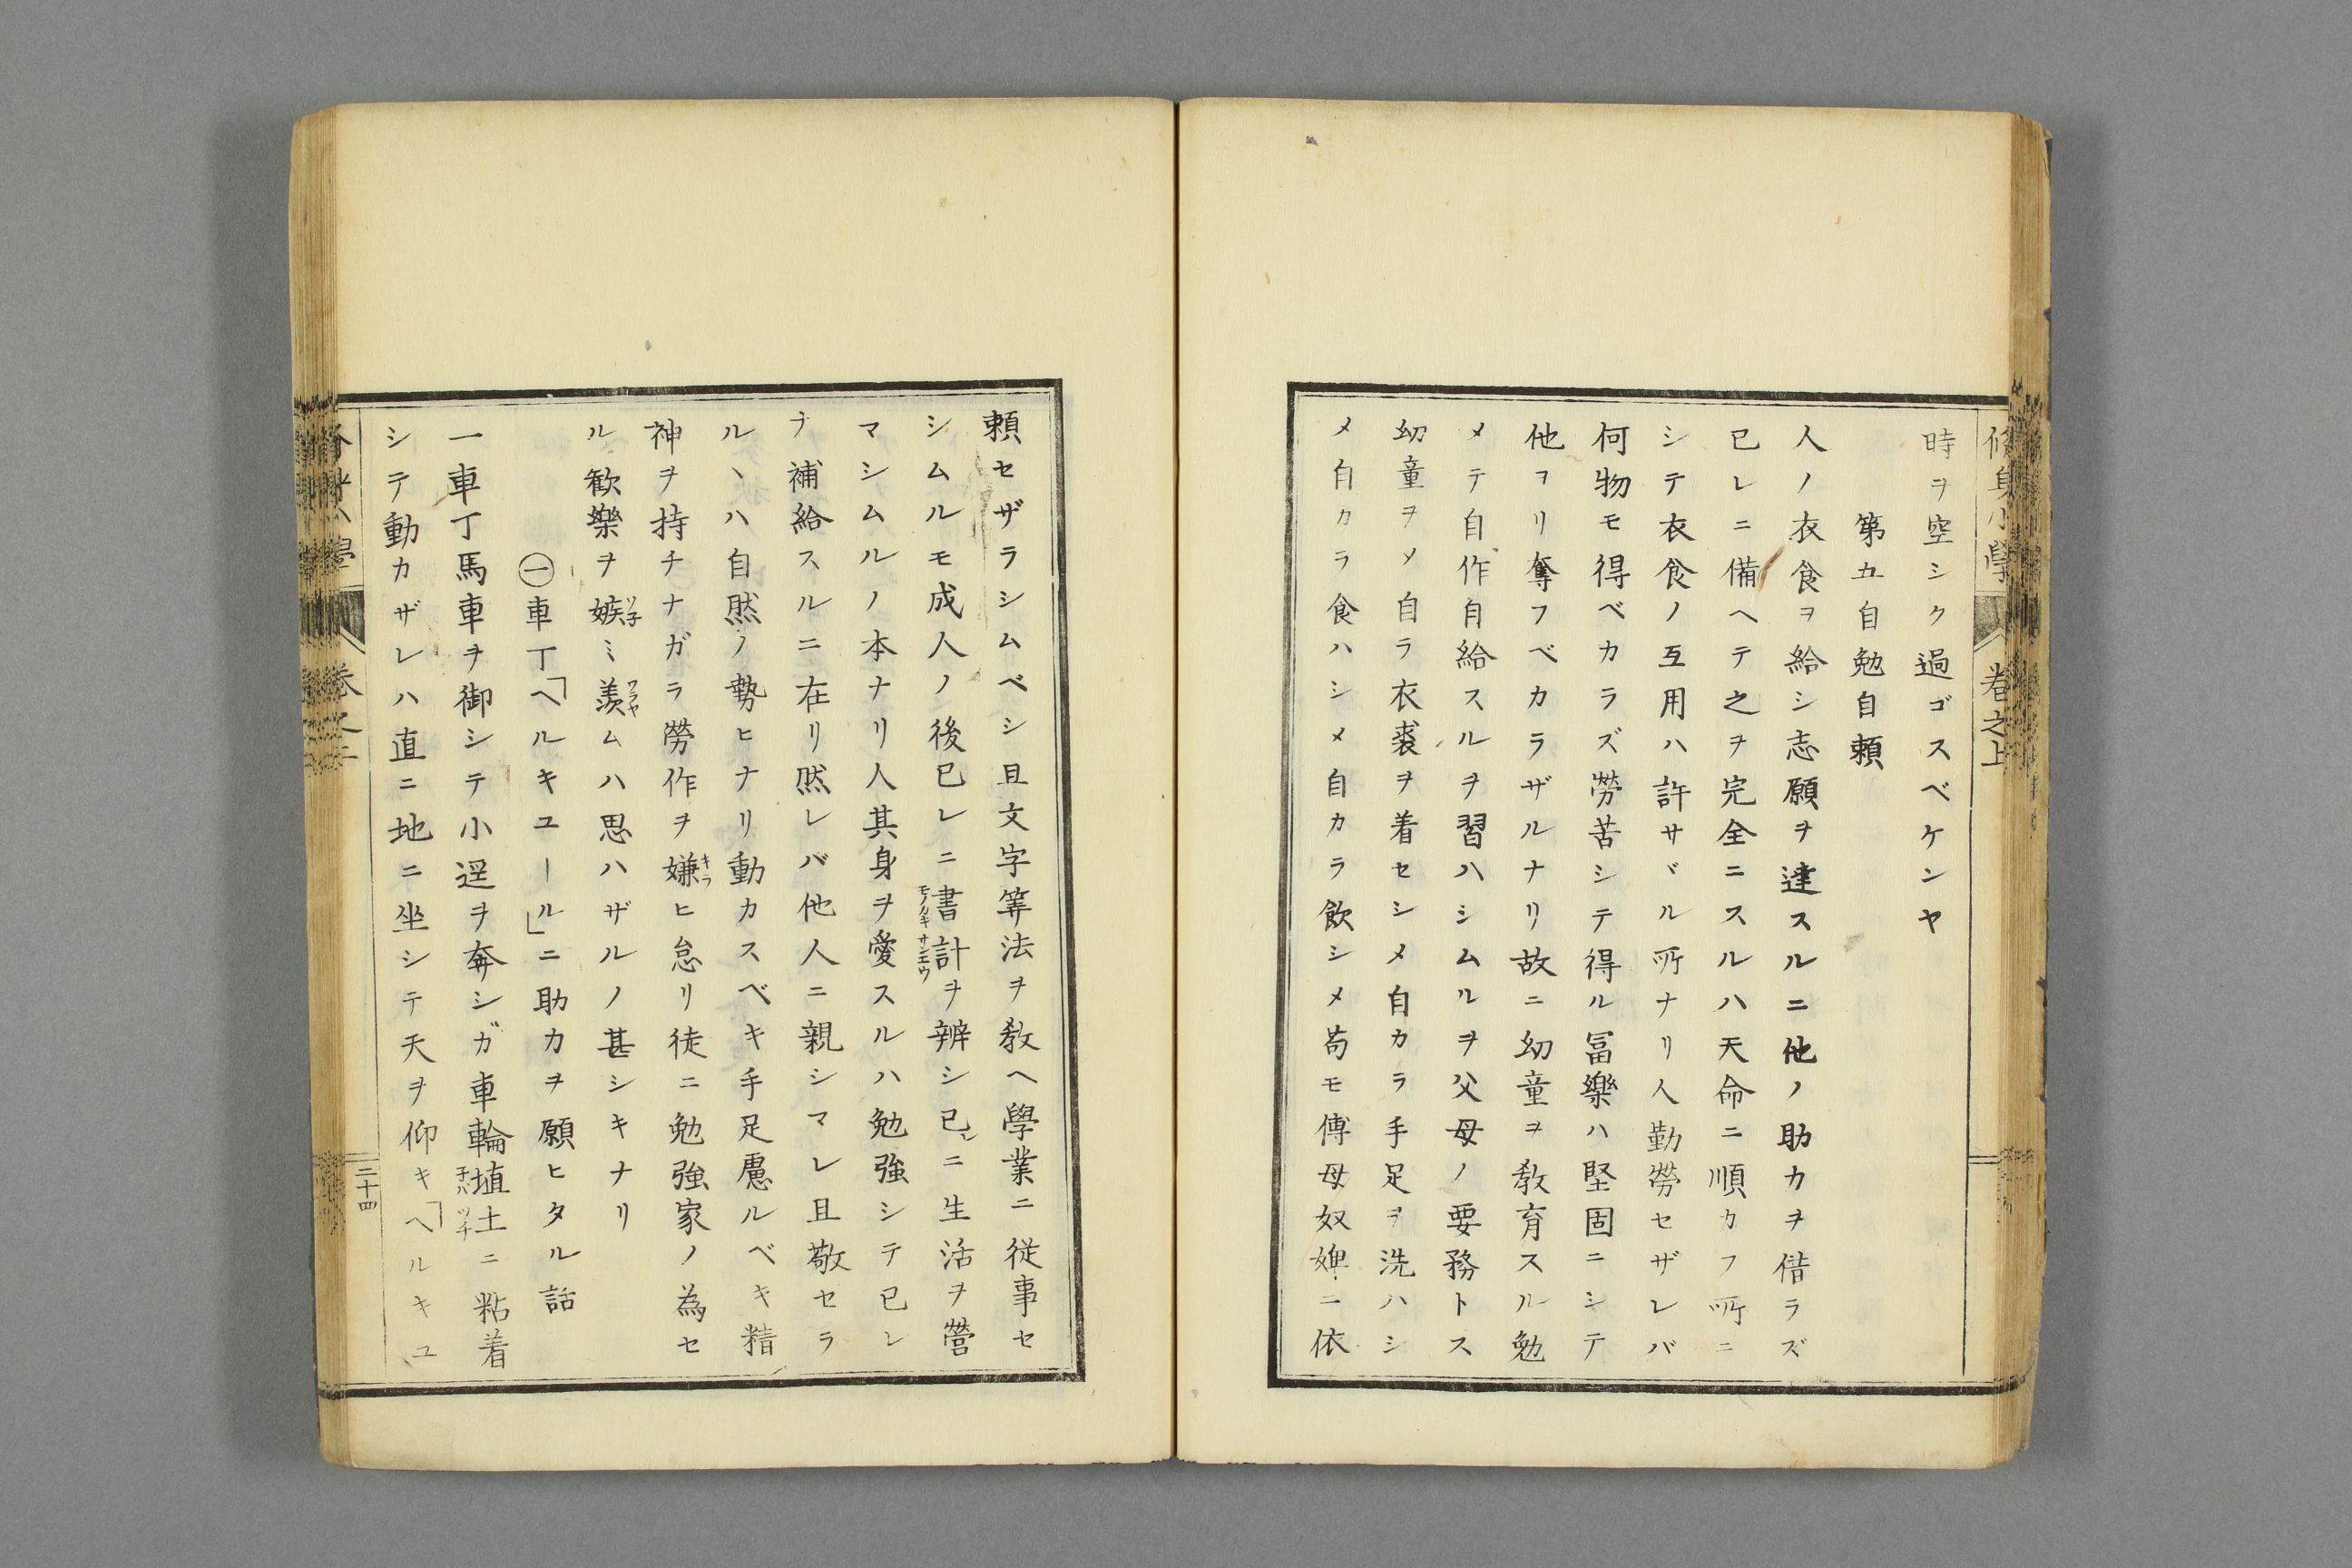 修身小學 卷之上
時ヲ空シク過ゴスベケンヤ
第五自勉自頼
人ノ衣食ヲ給シ志願ヲ達スルニ他ノ助カヲ借ラズ
已レニ備ヘテ之ヲ完全ニスルハ天命ニ順カフ所ニ
シテ衣食ノ互用ハ許サヾル所ナリ人勤勞セザレバ
何物モ得ベカラズ勞苦シテ得ル冨樂ハ堅固ニシテ
他ヨリ奪フベカラザルナリ故ニ幼童ヲ教育スル勉
メテ自作自給スルヲ習ハシムルヲ父母ノ要務トス
幼童ヲメ自ラ衣裘ヲ着セシメ自カラ手足ヲ洗ハシ
メ自カラ食ハシメ自カラ飲シメ苟モ傅母奴婢ニ依
頼セザラシムベシ且文字筭法ヲ教ヘ學業ニ従事セ
シムルモ成人ノ後已レニ書計ヲ辨シ已レニ生活ヲ營
マシムルノ本ナリ人其身ヲ愛スルハ勉強シテ已レ
ヲ補給スルニ在リ然レバ他人ニ親シマレ且敬セラ
ルヽハ自然ノ勢ヒナリ動カスベキ手足慮ルベキ精
神ヲ持チナガラ勞作ヲ嫌ヒ怠リ徒ニ勉強家ノ為セ
ル歓樂ヲ嫉ミ羨ムハ思ハザルノ甚シキナリ
㊀車丁「ヘルキユール」ニ助カヲ願ヒタル話
一車丁馬車ヲ御シテ小逕ヲ奔シガ車輪埴土ニ粘着
シテ動カザレハ直ニ地ニ坐シテ天ヲ仰キ「ヘルキユ
二十四